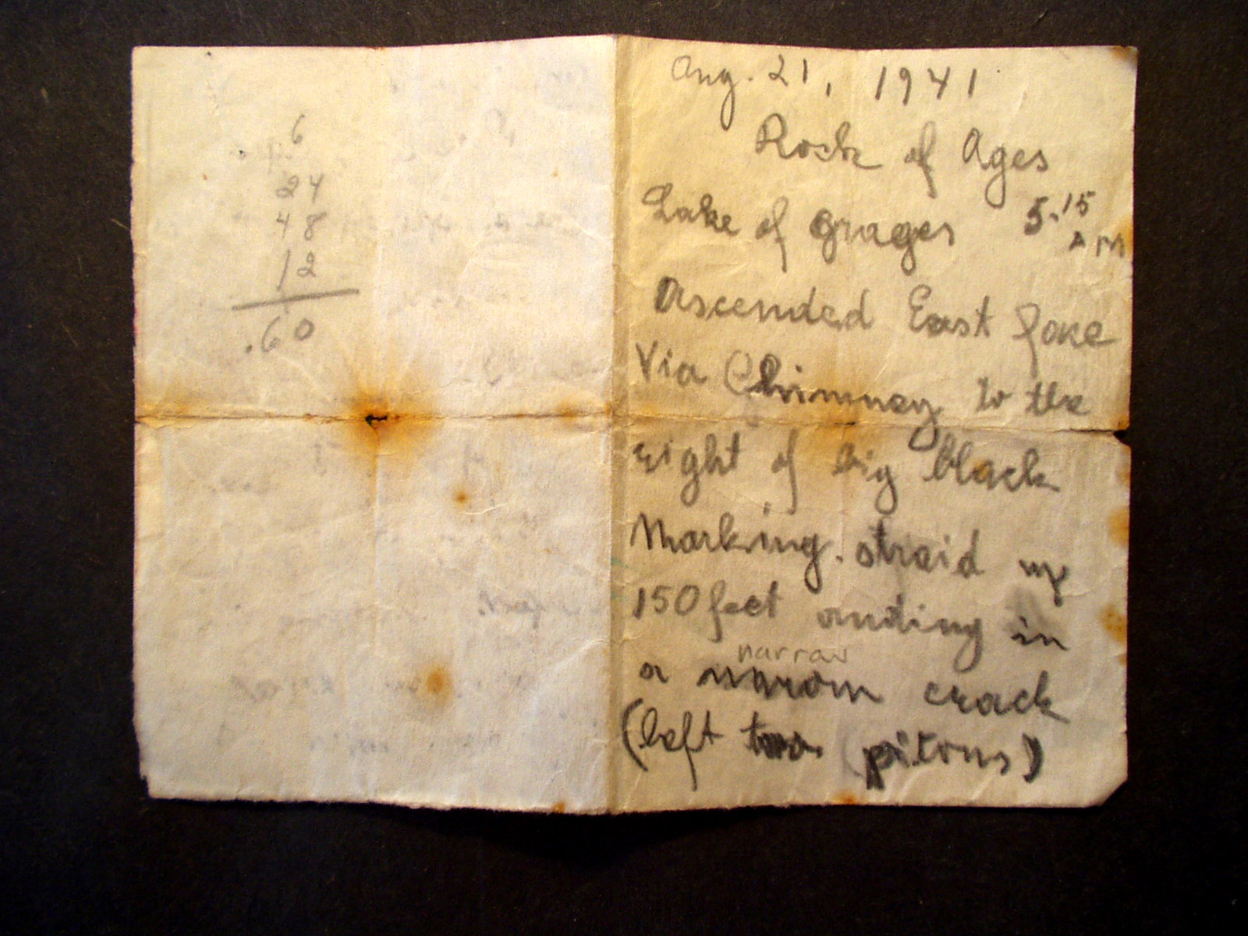 6
24
48
12
.60
Aug. 21, 1941
Rock of Ages
Lake of grages 5.15
AM
Ascended East face
Via Chimney to the
right of big black
Marking. straid up
150 feet anding in
narrow
a narrow crack
(left two pitons)